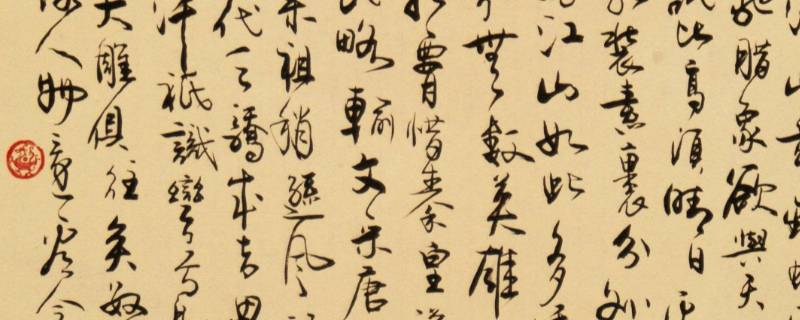 山舞
馳蜡象欲與天
試比高須晴日
裝素裹分外
江山如此多
引無數英雄
腰惜秦皇
略輸文采唐
宋祖稍遜風
代天驕成吉思
汗祗識彎弓射
大雕俱往矣數
人物還看今